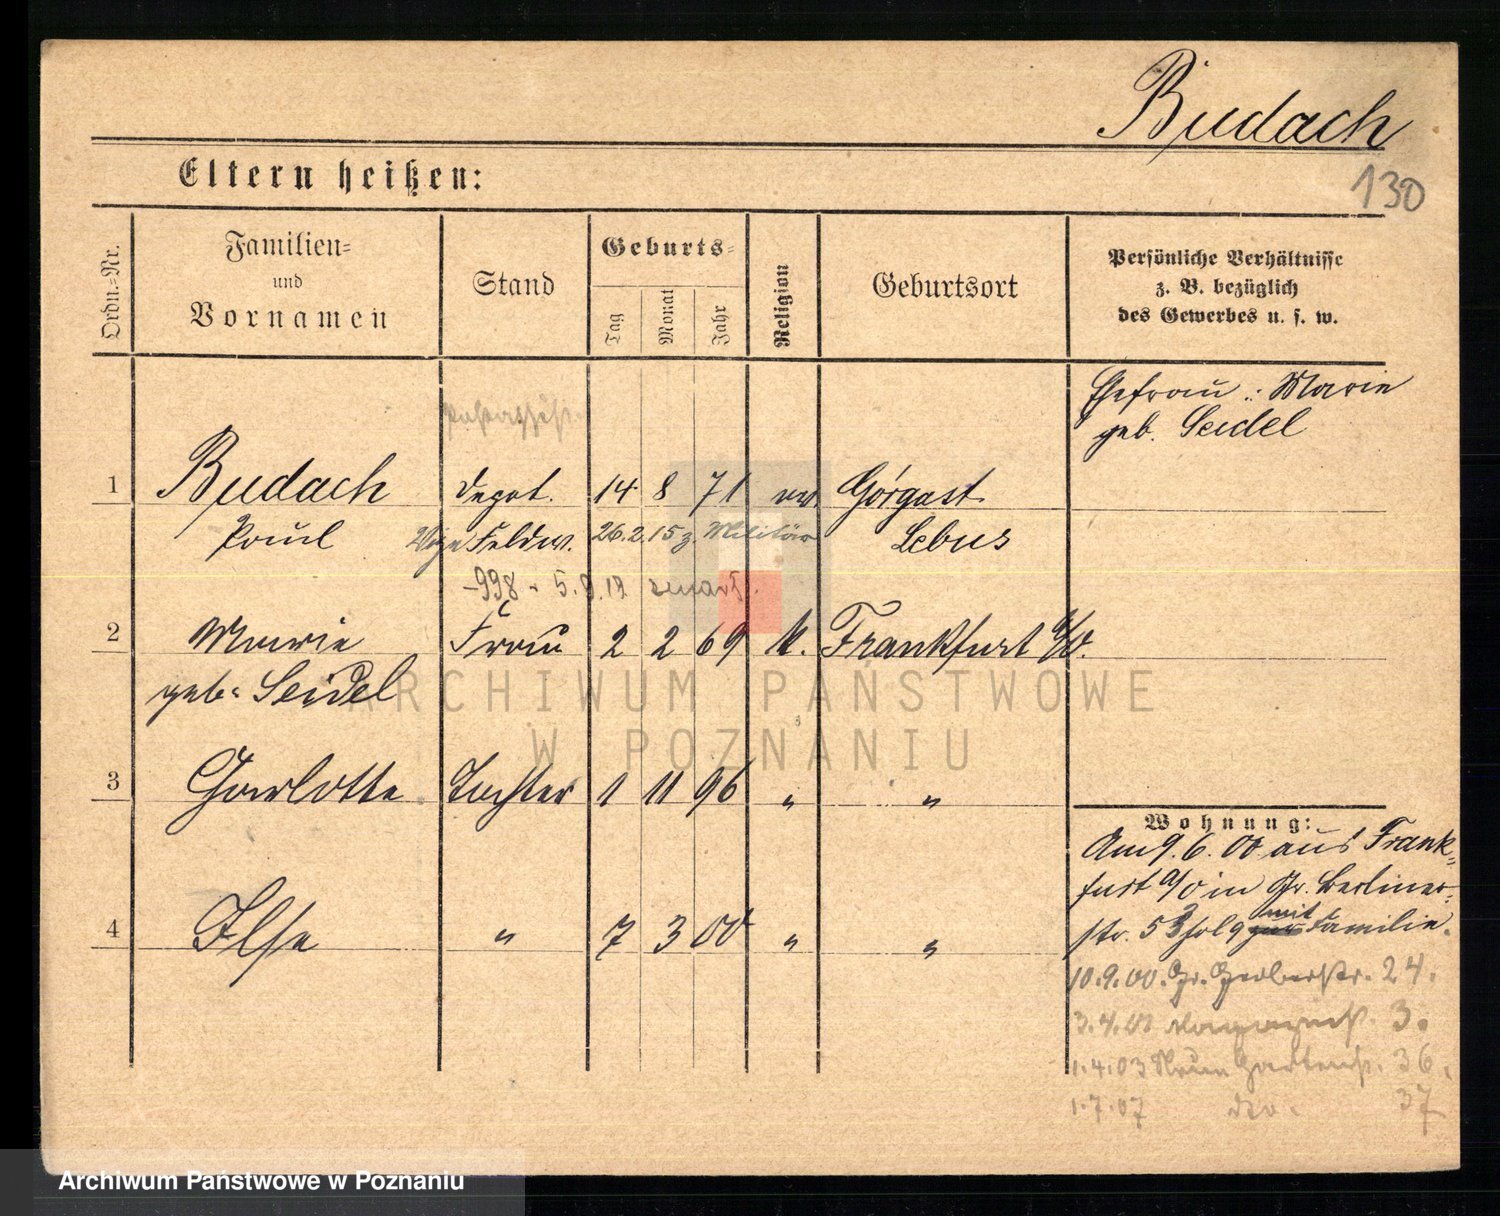 Budach
130
Eltern heißen:
Ordn.-Nr.
Familien-
und
Vornamen
Stand
Geburts-
Tag
Monat
Jahr
Religion
Geburtsort
Persönliche Verhältnisse
z. B. bezüglich
des Gewerbes u. s. w.
Ehefrau : Marie
geb. Seidel
1 Budach Depot. 14 8 71 ev. Görgast
Paul Vize Feldw. 26.2.15 z. Militär Lebus
-998 - 5.9.19
2 Marie Frau 2 2 69 k. Frankfurt a/O.
geb. Seidel
ARCHIWUM PAŃSTWOWE
W POZNANIU
3 Charlotte Tochter 1 11 96 " "
4 Ilse " 7 3 00 " "
Wohnung:
Am 9.6.00 aus Frank-
furt a/O in Gr. Berliner-
str. 53 mit Familie.
10.9.00. Gr. Gerberstr. 24.
3.4.01 Magazinst. 3.
1.4.03 Neue Gartenst. 36.
1.7.07 dto. 37
Archiwum Państwowe w Poznaniu